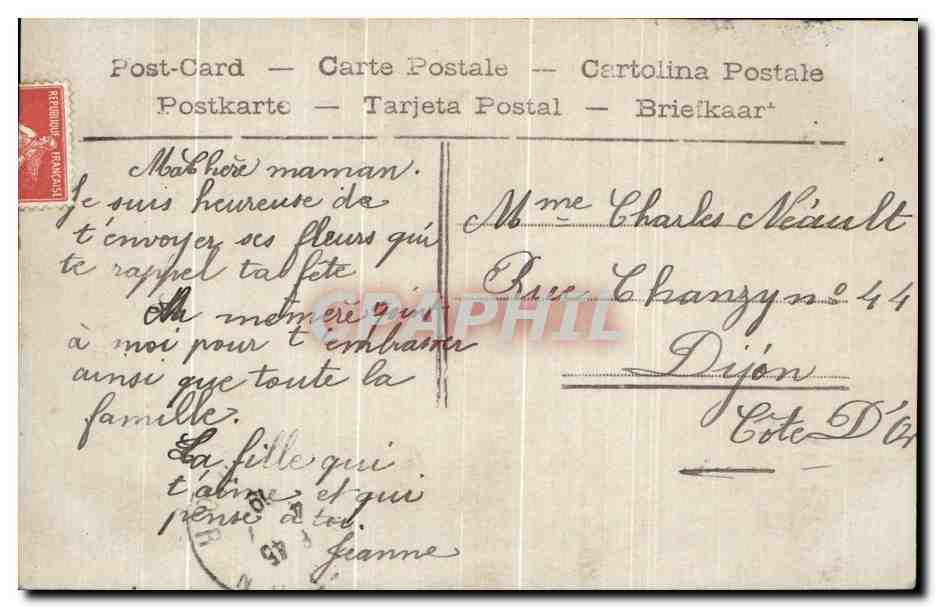 Post-Card — Carte Postale — Cartolina Postale
Postkarte — Tarjeta Postal — Briefkaart
REPUBLIQUE FRANÇAISE
Ma Chère maman.
Je suis heureuse de
t'envoyer ses fleurs qui
te rappel ta fête
mémère
à moi pour t'embrasser
ainsi que toute la
famille.
La fille qui
t'aime et qui
pense à toi.
Jeanne
Mme Charles Néault
Rue Chanzy no 44
Dijón
Côte D'Or
CPAPHIL